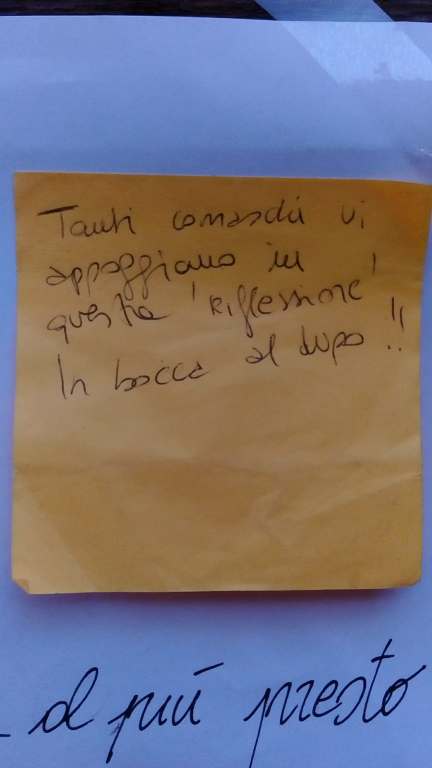 Tanti comaschi vi
appoggiano in
questa 'riflessione'
In bocca al lupo!!
al più presto